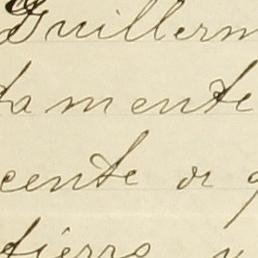 Guillerm
tamente
cente or q
tierra y